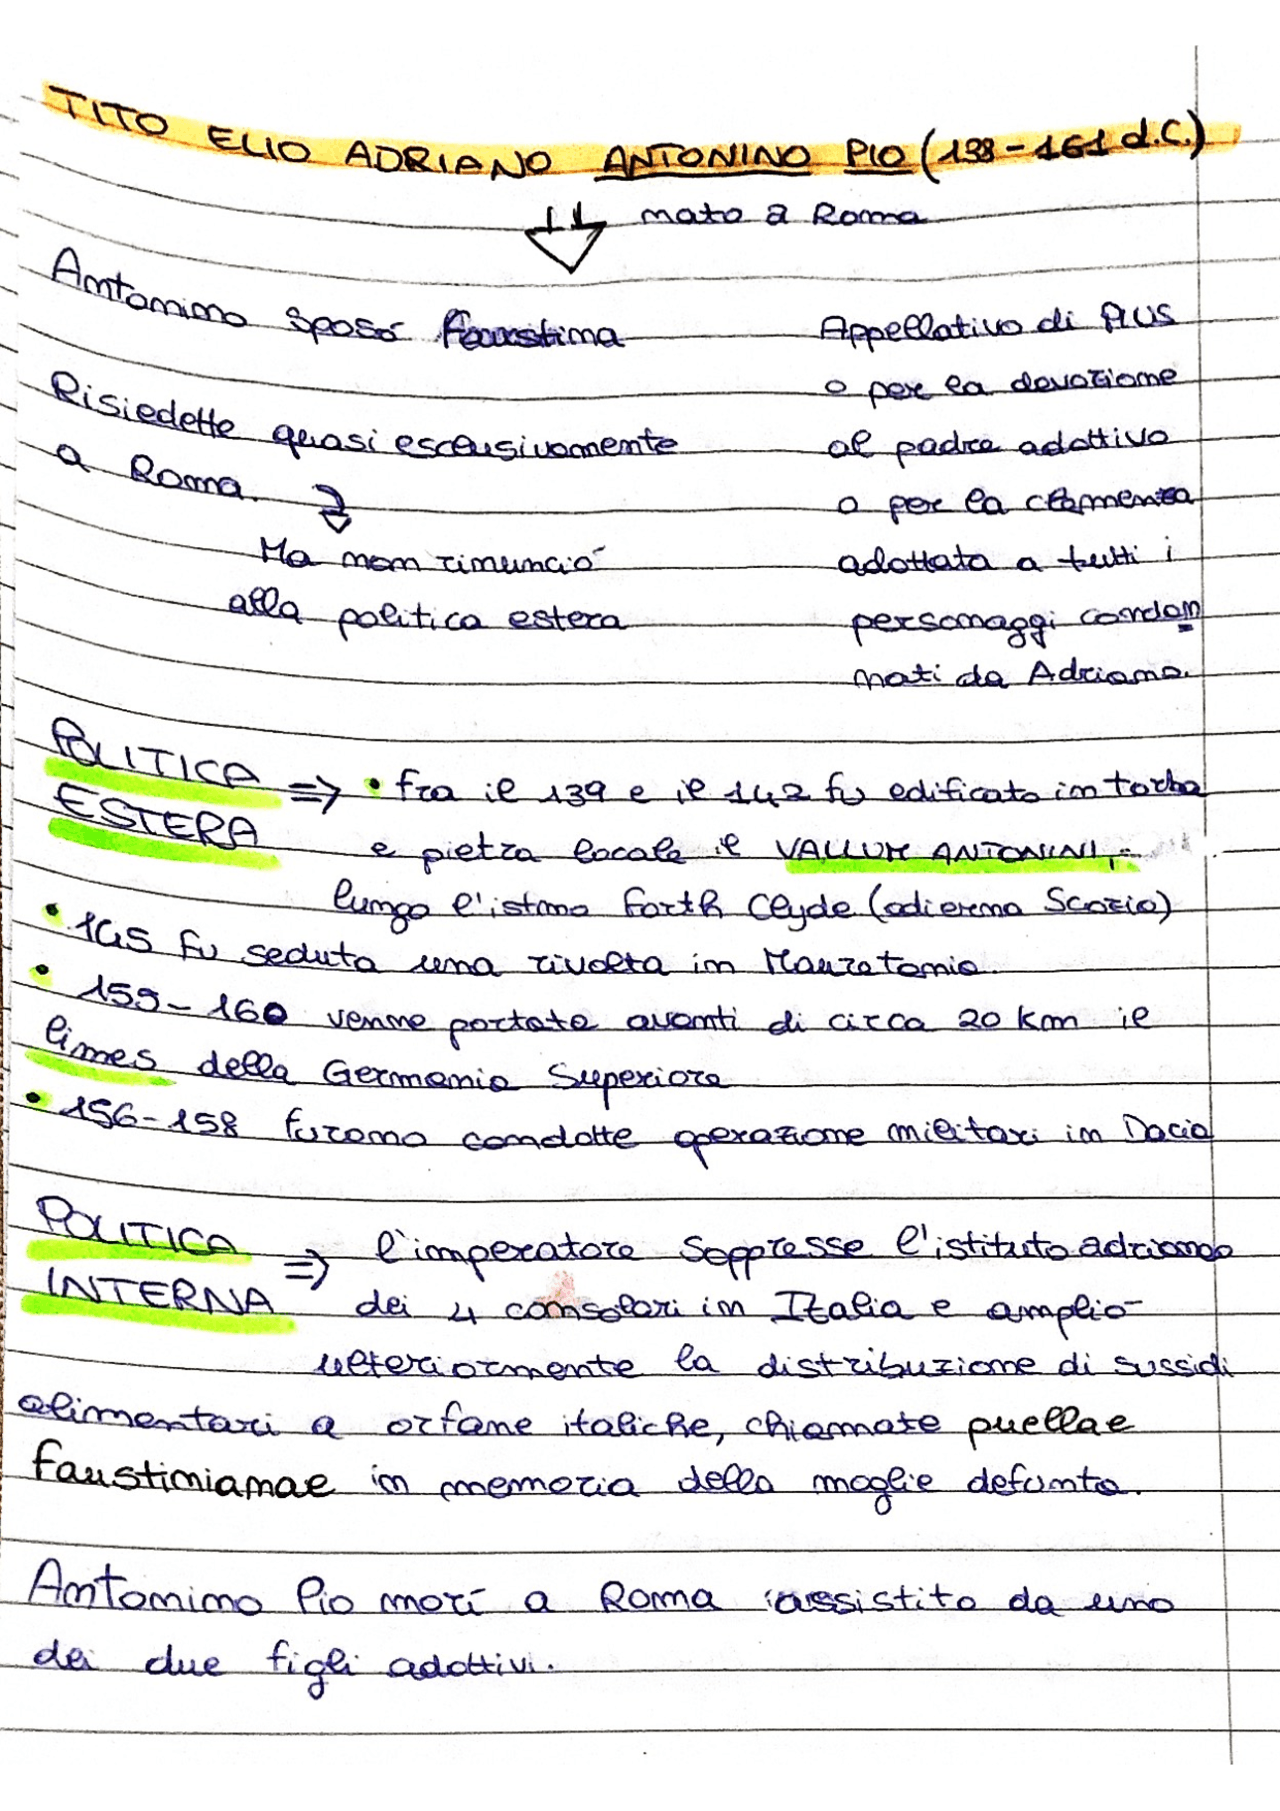 TITO ELIO ADRIANO ANTONINO PIO (138-161 d.C.)
nato a Roma
Antonino sposò Faustina
Risiedette quasi esclusivamente
a Roma.
Ma non rinunciò
alla politica estera
Appellativo di PIUS
o per la devozione
al padre adottivo
o per la clemenza
adottata a tutti i
personaggi condan
nati da Adriano.
POLITICA
ESTERA
⇒ • fra il 139 e il 142 fu edificato in torba
e pietra locale il VALLUM ANTONINI,
lungo l'istmo Forth Clyde (odierna Scozia)
• 145 fu seduta una rivolta in Mauretania.
• 159-160 venne portato avanti di circa 20 km il
limes della Germania Superiore
• 156-158 furono condotte operazione militari in Dacia
POLITICA
INTERNA
⇒ l'imperatore soppresse l'istituto adrianeo
dei 4 consolari in Italia e ampliò
ulteriormente la distribuzione di sussidi
alimentari a orfane italiche, chiamate puellae
faustinianae in memoria della moglie defunta.
Antonino Pio morì a Roma assistito da uno
dei due figli adottivi.